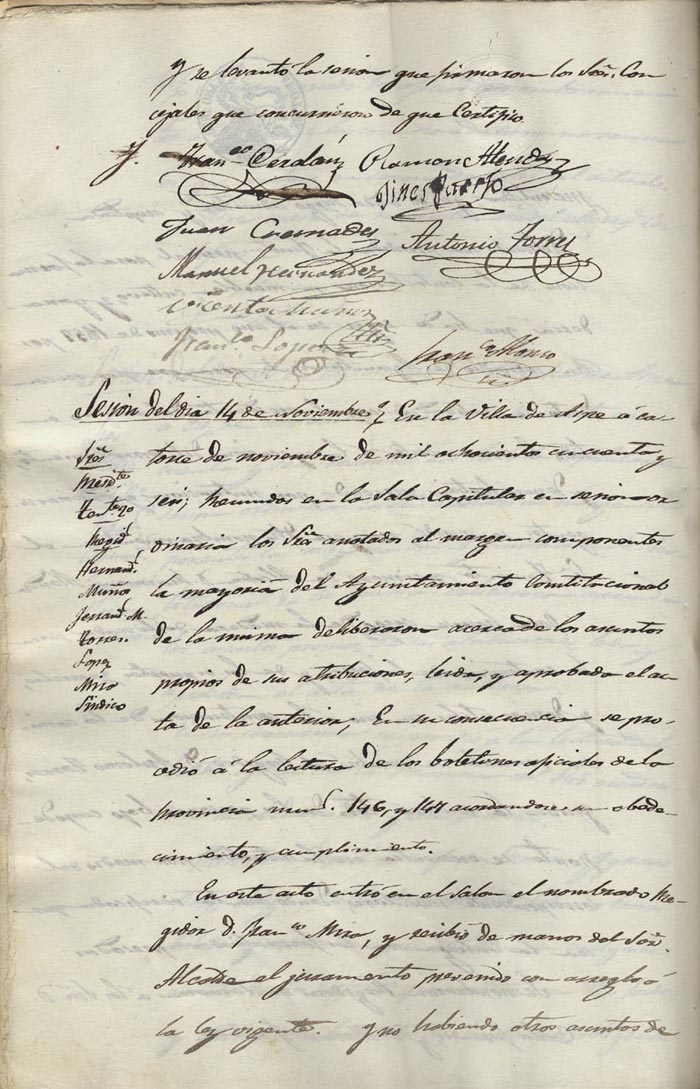 y se levantó la sesion que firmaron los Sres. Con
cejales que concurrieron de que Certifico.
Franco Cerdán Ramon Alenda
Gines Pastor
Juan Cremades Antonio Torres
Manuel Hernandez
Vicente Muñoz
Franco Lopez
Franco Alonso
Sesion del dia 14 de Noviembre En la Villa de Aspe á ca-
torce de noviembre de mil ochocientos cincuenta y
seis; reunidos en la Sala Capitular en sesion or
dinaria los Sres anotados al margen componentes
la mayoria del Ayuntamiento Constitucional
de la misma deliberaron acerca de los asuntos
propios de sus atribuciones, leida, y aprobada el ac-
ta de la anterior, En su consecuencia se pro-
cedió á la lectura de los boletines oficiales de la
provincia num.s 146, y 147 acordandose su obede-
cimiento, y cumplimiento.
En este acto entró en el salon el nombrado Re-
gidor D. Franco Miro, y recibió de manos del Sor.
Alcalde el juramento prevenido con arreglo á
la ley vigente. y no habiendo otros asuntos de
Sres
Presidte
Tente 2o
Regid.s
Hernand.
Muñoz
Ferrand. M.
Torres
Lopez
Miro
Sindico